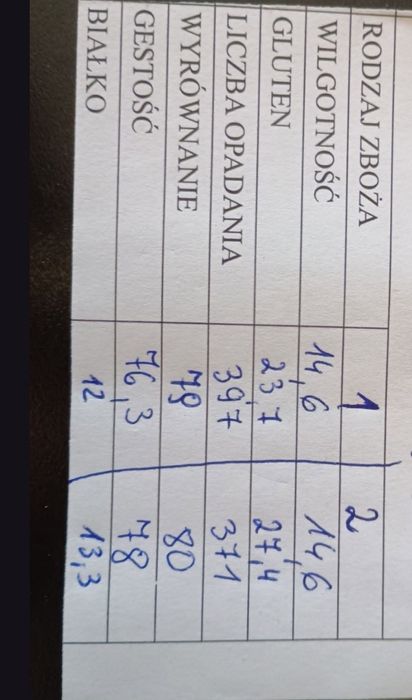 RODZAJ ZBOŻA 1 2
WILGOTNOŚĆ 14,6 14,6
GLUTEN 23,7 27,4
LICZBA OPADANIA 397 371
WYRÓWNANIE 78 80
GESTOŚĆ 76,3 78
BIAŁKO 12 13,3